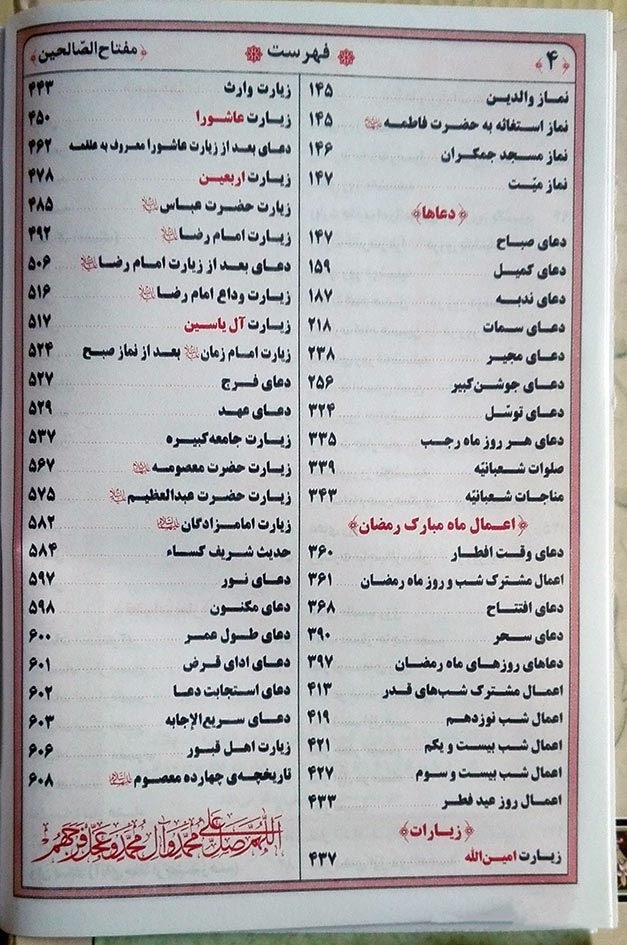 ﴿۴﴾ فهرست ﴿مفتاح الصّالحین﴾
نماز والدین ۱۴۵
نماز استغاثه به حضرت فاطمه ۱۴۵
نماز مسجد جمکران ۱۴۶
نماز میّت ۱۴۷
﴿دعاها﴾
دعای صباح ۱۴۷
دعای کمیل ۱۵۹
دعای ندبه ۱۸۷
دعای سمات ۲۱۸
دعای مجیر ۲۳۸
دعای جوشن‌کبیر ۲۵۶
دعای توسّل ۳۲۴
دعای هر روز ماه رجب ۳۳۵
صلوات شعبانیّه ۳۳۹
مناجات شعبانیّه ۳۴۳
﴿اعمال ماه مبارک رمضان﴾
دعای وقت افطار ۳۶۰
اعمال مشترک شب و روز ماه رمضان ۳۶۱
دعای افتتاح ۳۶۸
دعای سحر ۳۹۰
دعاهای روزهای ماه رمضان ۳۹۷
اعمال مشترک شب‌های قدر ۴۱۳
اعمال شب نوزدهم ۴۱۹
اعمال شب بیست و یکم ۴۲۱
اعمال شب بیست و سوم ۴۲۷
اعمال روز عید فطر ۴۳۳
﴿زیارات﴾
زیارت امین‌الله ۴۳۷
زیارت وارث ۴۴۳
زیارت عاشورا ۴۵۰
دعای بعد از زیارت عاشورا معروف به علقمه ۴۶۲
زیارت اربعین ۴۷۸
زیارت حضرت عباس ۴۸۵
زیارت امام رضا ۴۹۲
دعای بعد از زیارت امام رضا ۵۰۶
زیارت وداع امام رضا ۵۱۶
زیارت آل یاسین ۵۱۷
زیارت امام زمان بعد از نماز صبح ۵۲۴
دعای فرج ۵۲۷
دعای عهد ۵۲۹
زیارت جامعه‌کبیره ۵۳۷
زیارت حضرت معصومه ۵۶۷
زیارت حضرت عبدالعظیم ۵۷۵
زیارت امامزادگان ۵۸۲
حدیث شریف کساء ۵۸۴
دعای نور ۵۹۷
دعای مکنون ۵۹۸
دعای طول عمر ۶۰۰
دعای ادای قرض ۶۰۱
دعای استجابت دعا ۶۰۲
دعای سریع‌الإجابه ۶۰۳
زیارت اهل قبور ۶۰۶
تاریخچه‌ی چهارده معصوم ۶۰۸
اَللّهُمَّ صَلِّ عَلی مُحَمَّدٍ وَآلِ مُحَمَّدٍ وَعَجِّلْ فَرَجَهُمْ